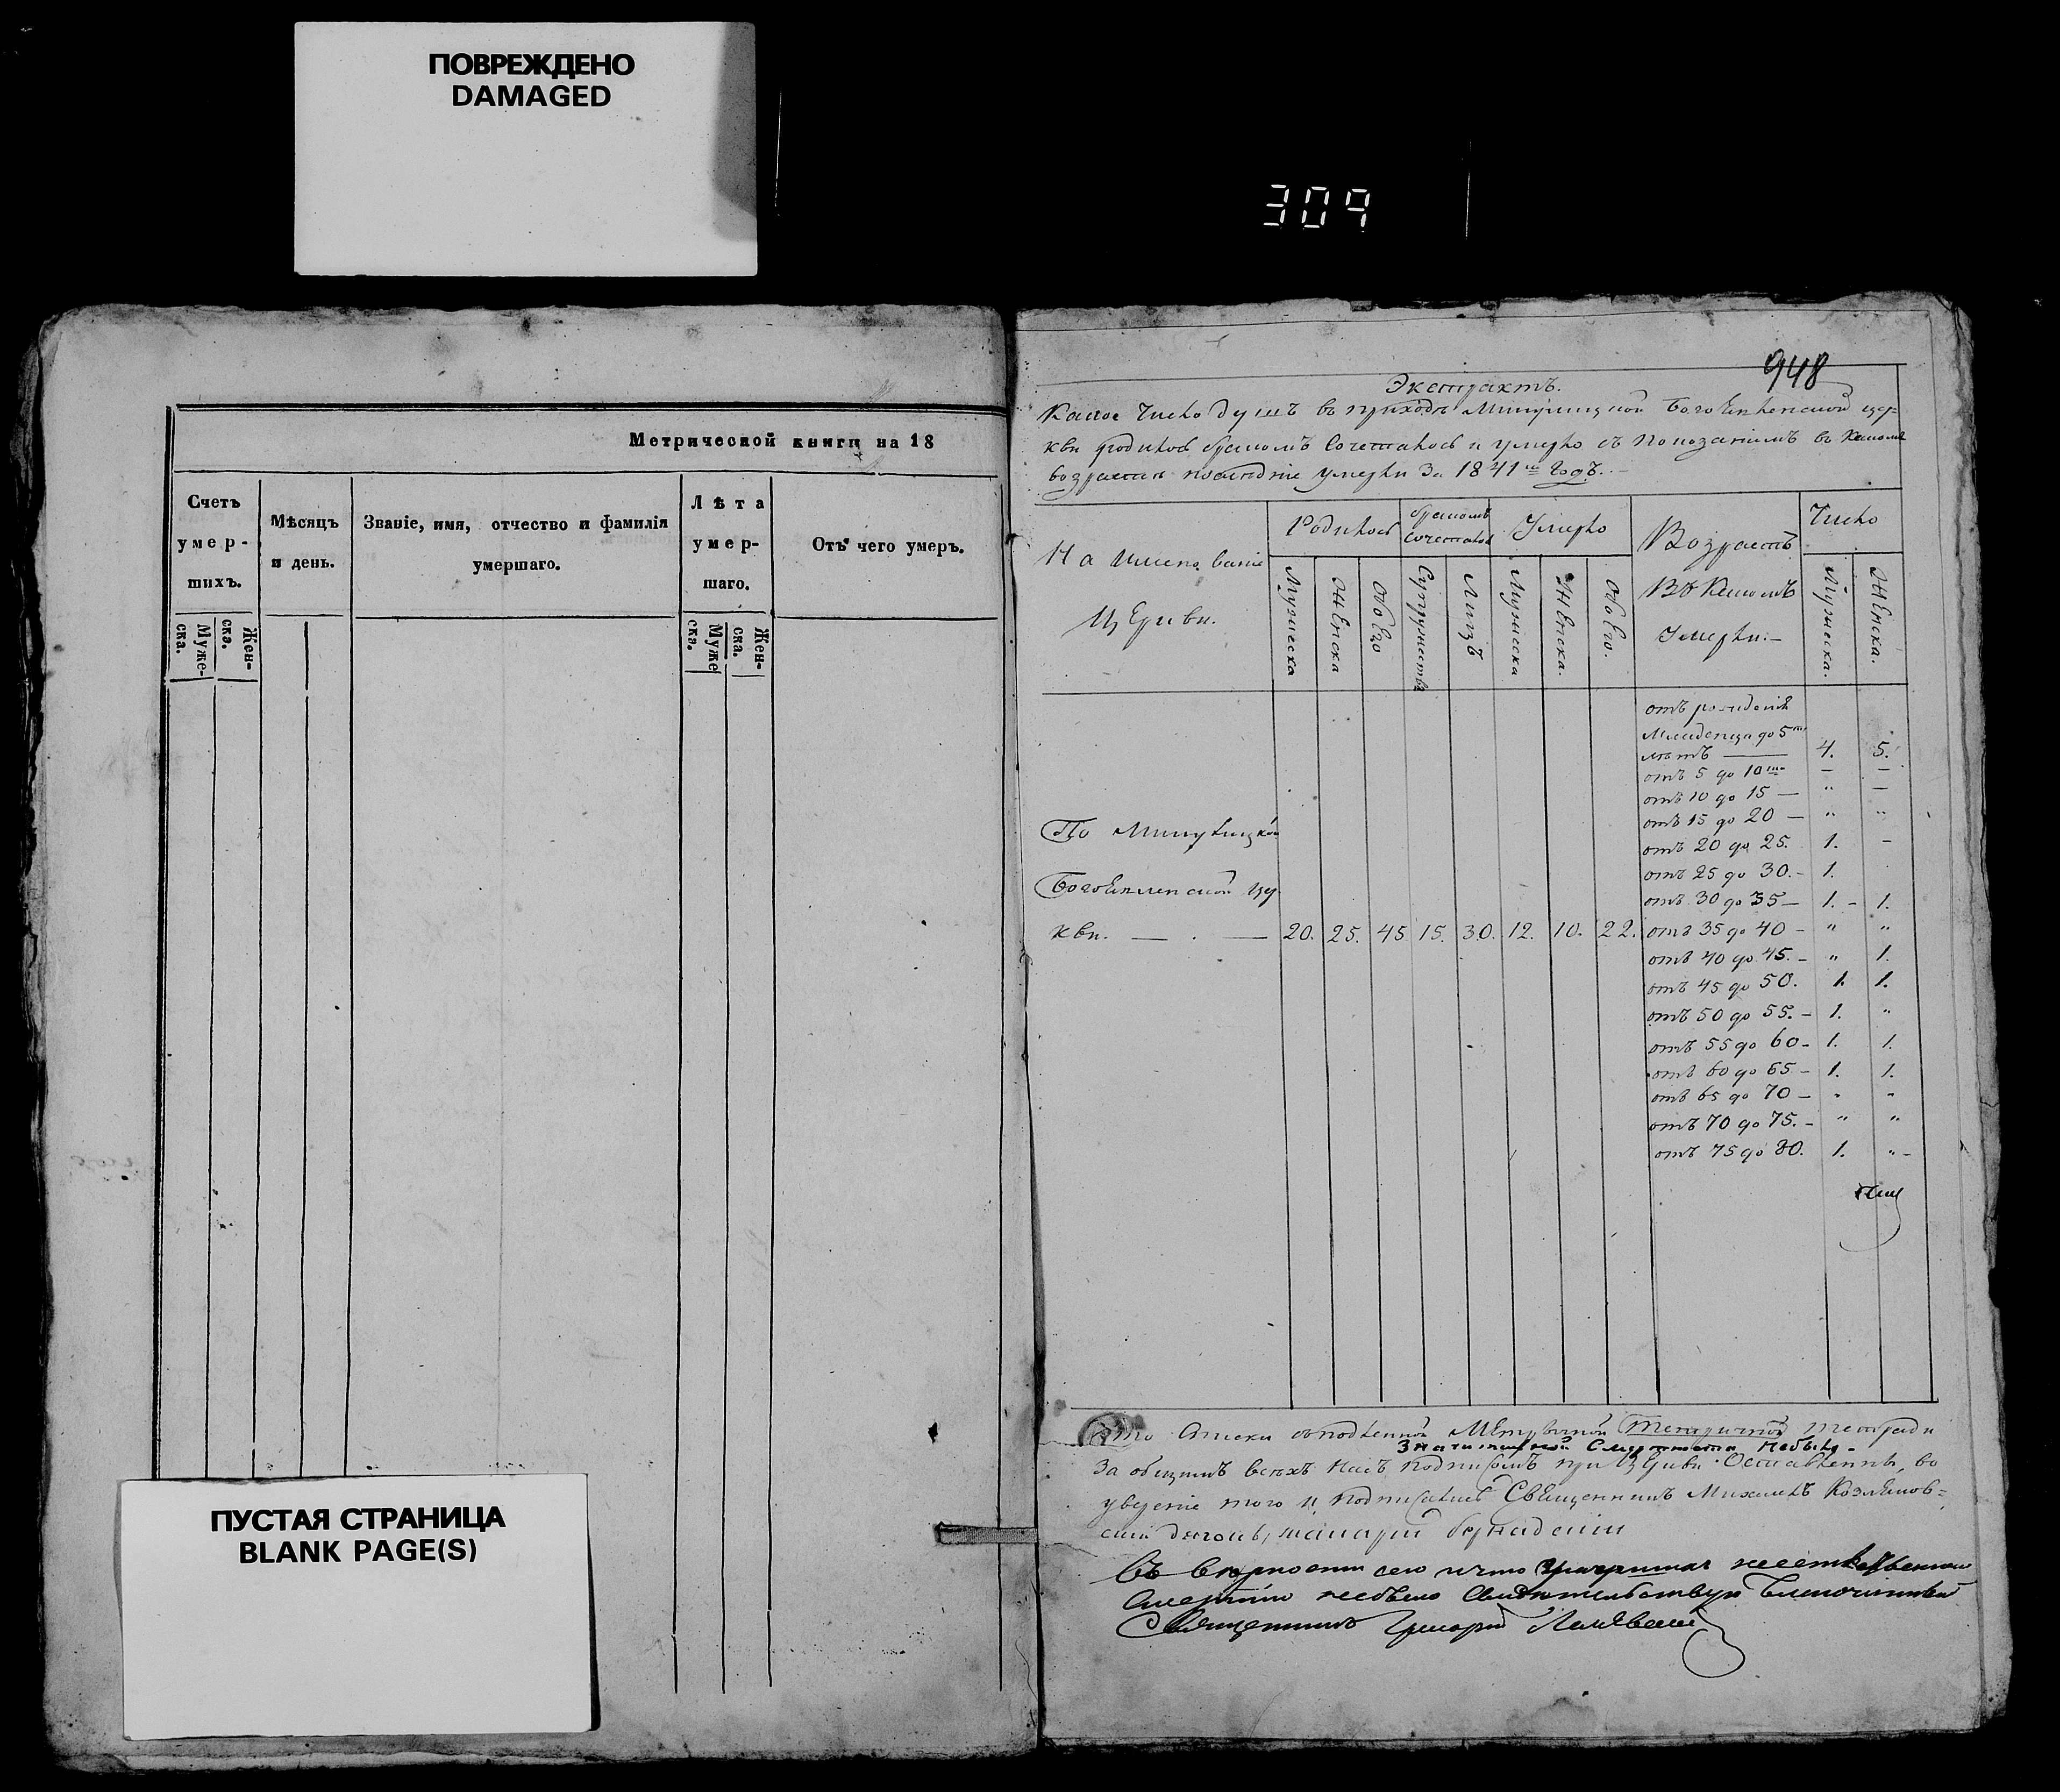 ПОВРЕЖДЕНО
DAMAGED
309
Метрической книги на 18
Счетъ умер-шихъ.
Муже-ска.
Жен-ска.
Мѣсяцъ и день.
Званіе, имя, отчество и фамилія умершаго.
Лѣта умер-шаго.
Муже ска.
Жен-ска.
Отъ чего умеръ.
ПУСТАЯ СТРАНИЦА
BLANK PAGE(S)
948
Экстрактъ.
Какое число душъ въ приходѣ Богоявленской цер-
кви родилось бракомъ сочеталось и умерло съ показаніемъ въ какомъ
возрастѣ послѣдніе умерли за 1841й годъ.
Наименованіе Церкви.
Родилось
Мужеска
Женска
Обоего
бракомъ сочеталось
Супружествъ
Лицъ
Умерло
Мужеска
Женска.
Обоего.
Возрастъ въ какомъ умерли.
Число
Мужеска.
Женска.
отъ рожденія
младенца до 5ти
лѣтъ — 4. 5.
отъ 5 до 10ти — —
отъ 10 до 15 — " —
отъ 15 до 20 — " "
отъ 20 до 25. 1. -
отъ 25 до 30. - 1.
отъ 30 до 35 — 1. - 1.
По
Богоявленской цер-
кви. — . — 20. 25. 45 15. 30. 12. 10. 22. отъ 35 до 40 - " "
отъ 40 до 45. - " 1.
отъ 45 до 50. 1. 1.
отъ 50 до 55. - 1. "
отъ 55 до 60 - 1. 1.
отъ 60 до 65 - 1. 1.
отъ 65 до 70 - " "
отъ 70 до 75. - " "
отъ 75 до 80. 1. " -
Что тетради
Смертности небыло.
За общимъ всѣхъ насъ подписомъ при Церкви Оставленны, во
увѣреніе того и подписались Священникъ Михаилъ
Въ вѣрности сего и что
Смертію небыло свидѣтельствую Благочинный
Священникъ Григорій